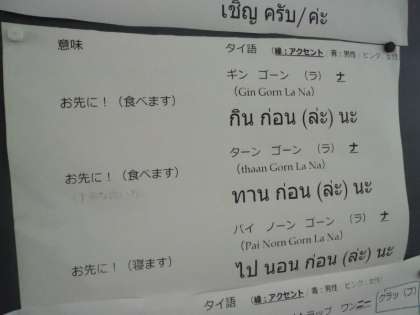 เชิญ ครับ/ค่ะ
意味 タイ語 (線：アクセント 青：男性 ピンク：女性
ギン ゴーン (ラ) ナ
お先に！（食べます） (Gin Gorn La Na)
กิน ก่อน (ล่ะ) นะ
ターン ゴーン (ラ) ナ
お先に！（食べます） (thaan Gorn La Na)
ทาน ก่อน (ล่ะ) นะ
パイ ノーン ゴーン (ラ) ナ
(Pai Norn Gorn La Na)
お先に！（寝ます） ไป นอน ก่อน (ล่ะ) นะ
タイ語 (線：アクセント 青：男性 ピンク：女性)
ワンニニ クラッ（プ）